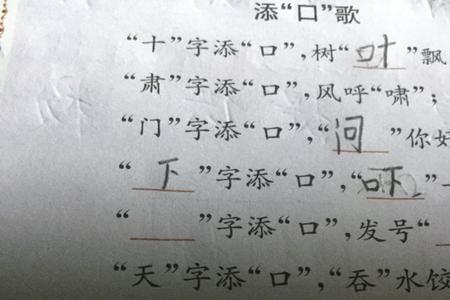 添“口”歌
“十”字添“口”,树“叶”飘
“肃”字添“口”,风呼“啸”;
“门”字添“口”,“问”你好
“下”字添“口”,“吓”一
“___”字添“口”,发号“
“天”字添“口”,“吞”水饺